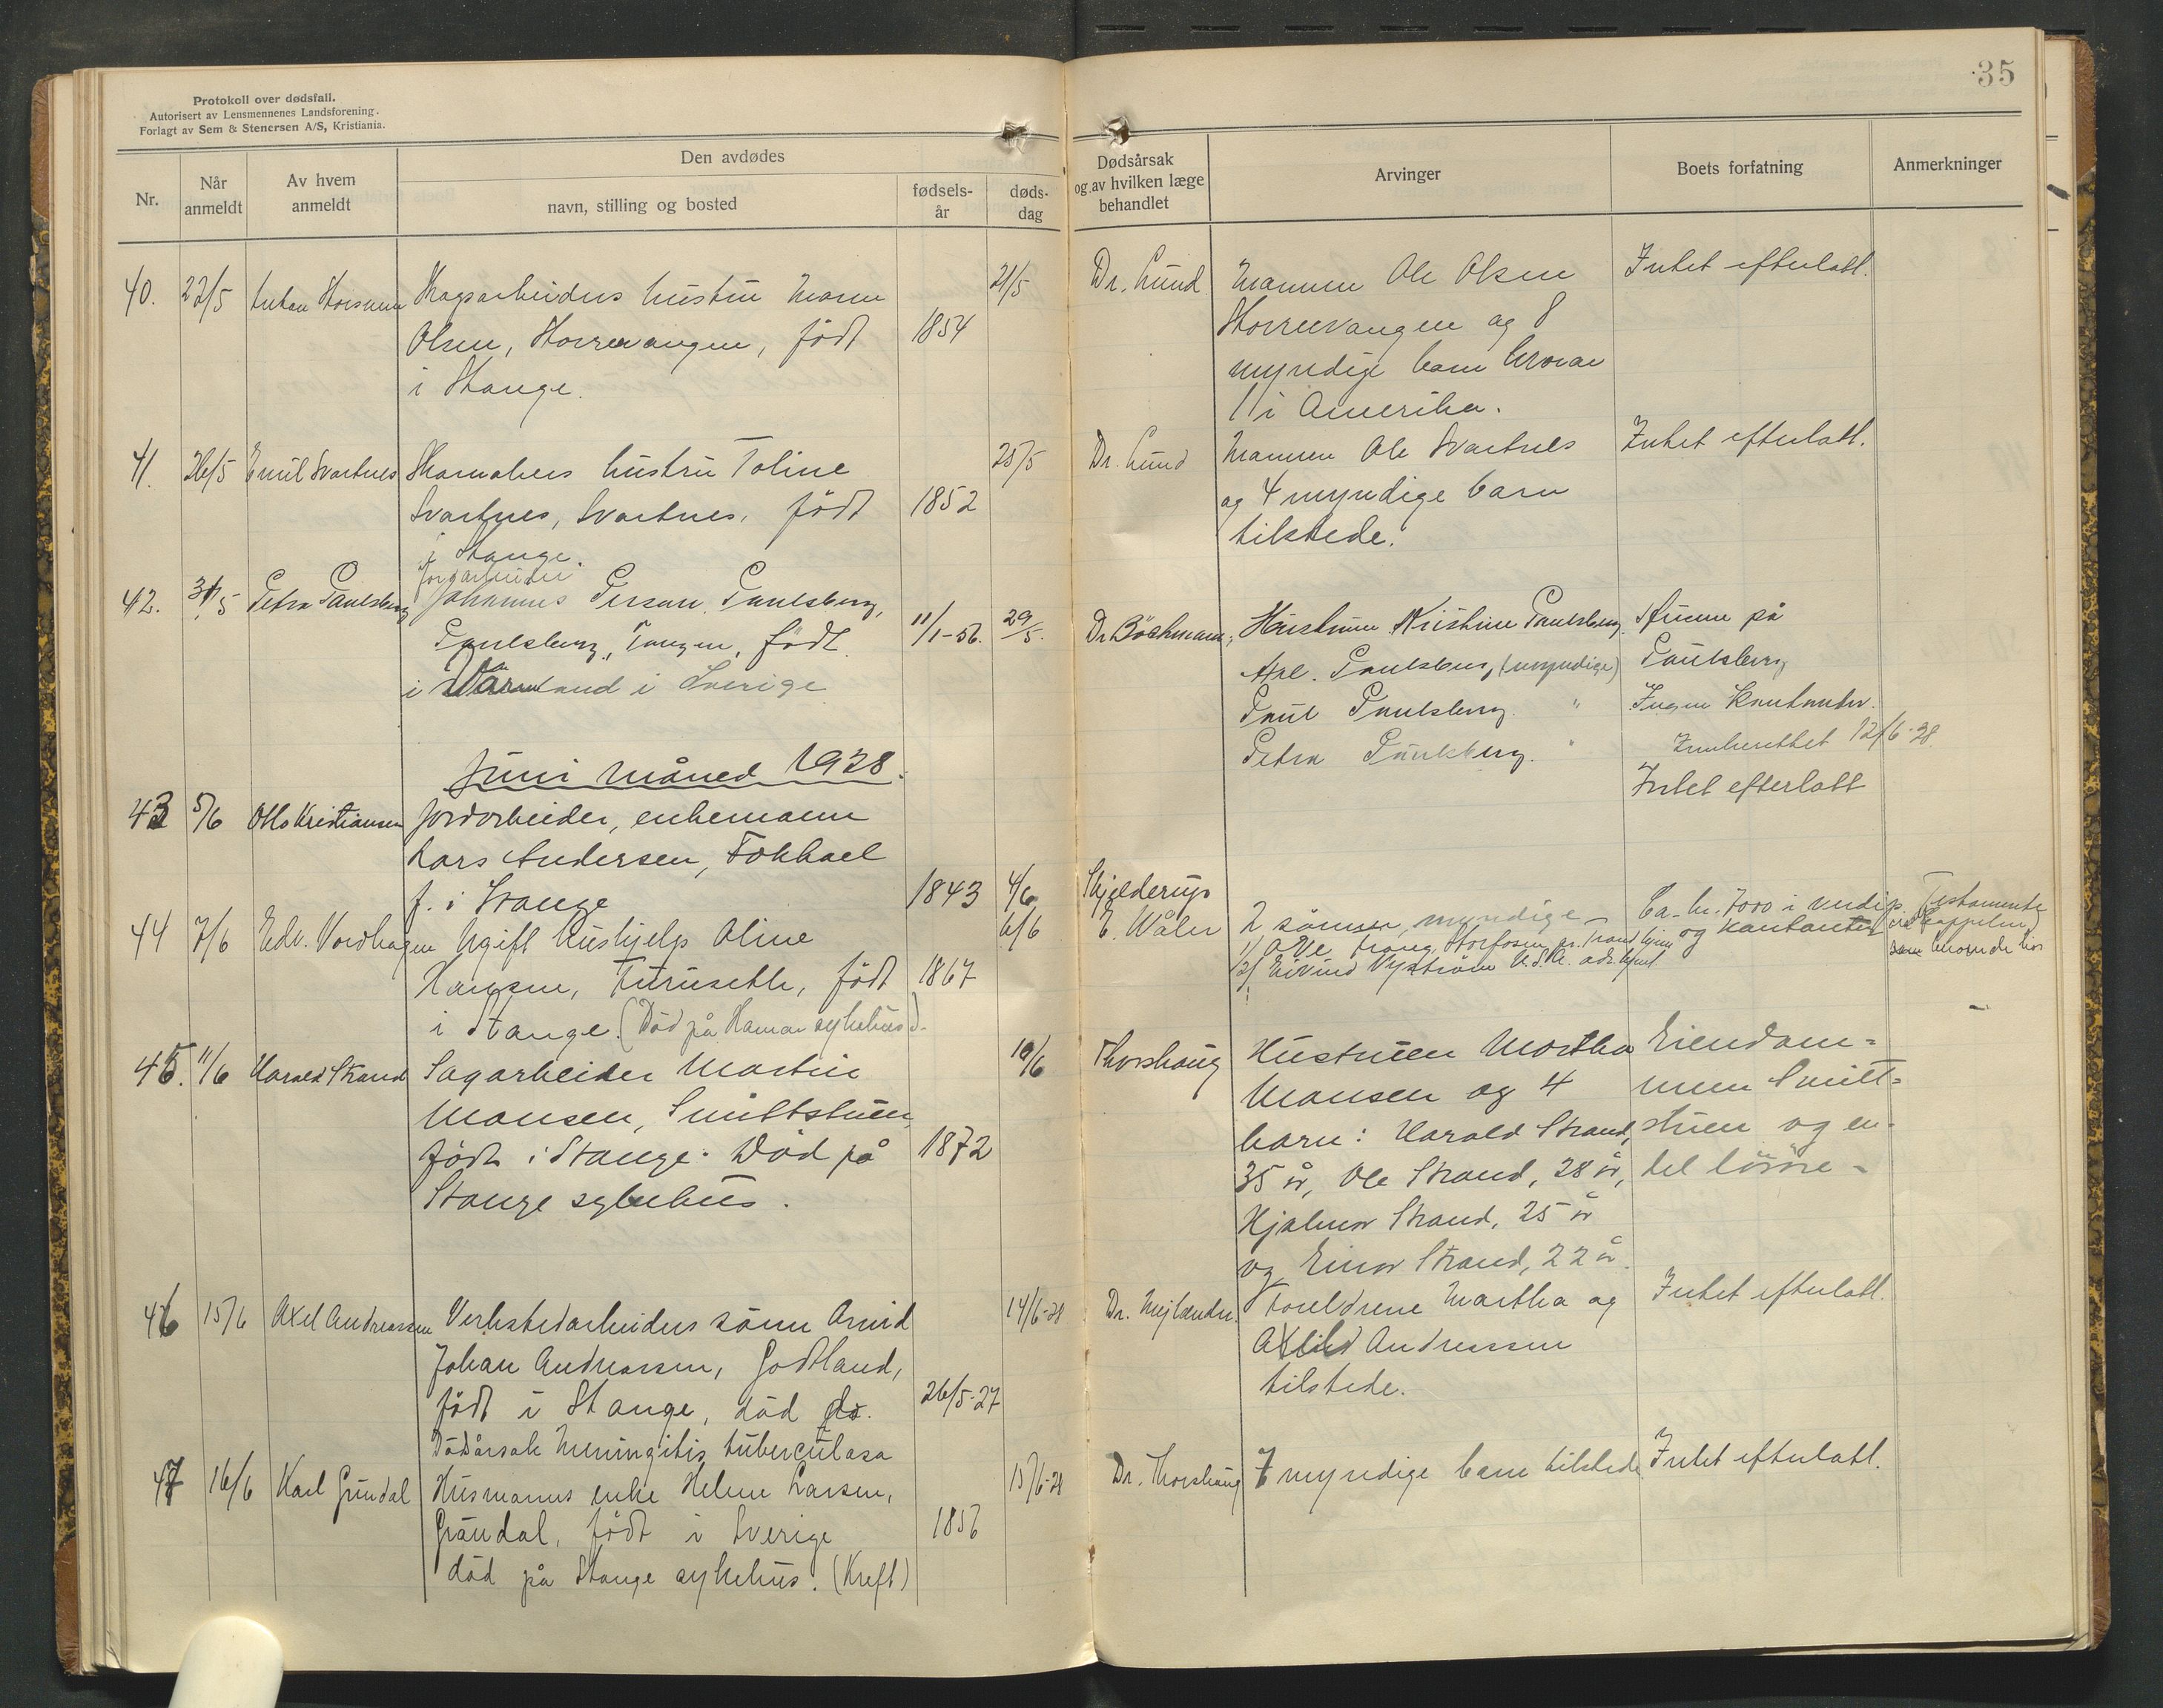 35
Protokoll over dødsfall.
Autorisert av Lensmennenes Landsforening.
Forlagt av Sem & Stenersen A/S, Kristiania.
Nr.
Når anmeldt
Av hvem anmeldt
Den avdødes
navn, stilling og bosted
fødsels-år
døds-dag
Dødsårsak og av hvilken læge behandlet
Arvinger
Boets forfatning
Anmerkninger
40. 22/5 hustru 21/5 Dr. Lund Mannen Ole Olsen Intet efterlatt.
Olsen, født 1854 og 8
i Stange. myndige barn hvorav
1 i Amerika.
41. 26/5 Emil Svartnes hustru Toline 25/5 Dr. Lund Mannen Ole Svartnes Intet efterlatt.
Svartnes, Svartnes, født 1852 og 4 myndige barn
i Stange. tilstede.
Jordarbeider
42. 31/5 Petra Paulsberg Johannes Persen Paulsberg, 11/1-56. 29/5. Dr Böckmann, Hustruen Kristine Paulsberg på
Paulsberg, Tangen, født Paulsberg, (myndige) Paulsberg
i Värmland i Sverige Paul Paulsberg " Ingen kontanter.
Petra Paulsberg. " Innberettet 12/6-28.
Juni måned 1928.
43 5/6 Otto Kristiansen Jordarbeider, enkemann Intet efterlatt
Lars Andersen,
f. i Stange 1843 4/6 Skjelderup
44 7/6 Edv. Vordhagen Ugift hushjelp Oline 6/6 E. Wåler 2 sønner, myndige - Ca. kr. 7000 i verdip. Testamente
og kontanter
Hansen, Furuseth, født 1867 2/ Eivind Nyström
i Stange. (Død på Hamar sykehus).
45. 11/6 Harald Strand Sagarbeider Martin 10/6 Thorshaug Hustruen Martha Eiendom=
Monsen, Smittstuen, Monsen og 4 men Smitt=
født i Stange. Død på 1872 barn: Harald Strand, stuen og en-
Stange sykehus. 35 år, Ole Strand, 28 år, del lösöre -
Hjalmar Strand, 25 år
og Einar Strand, 22 år.
46 15/6 Axel Andreassen Verkstedarbeiders sönn Arvid 14/6-28 Dr. Mejlænder. Foreldrene Martha og Intet efterlatt.
Johan Andreassen, Godtland, Andreassen
født i Stange, död do. 26/5-27 tilstede.
Dödsårsak Meningitis tuberculosa
47 16/6 Karl Gründal Husmanns enke Helene Larsen, 15/6-28 Dr. Thorshaug 7 myndige barn tilstede Intet efterlatt.
Gründal, født i Sverige 1856
död på Stange sykehus. (Kreft)